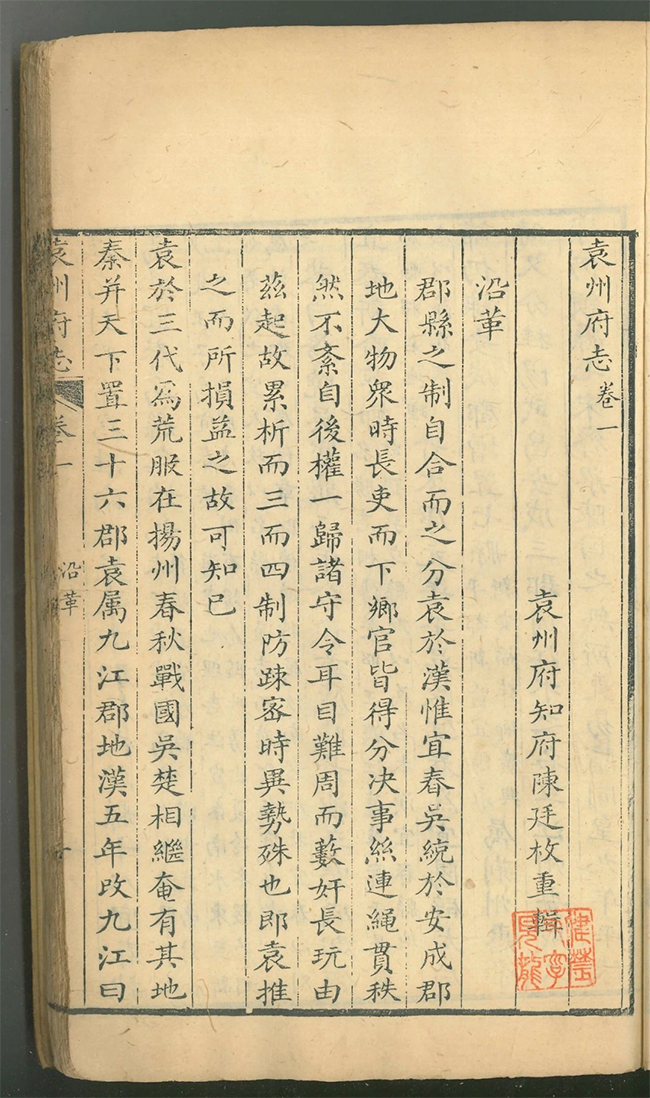 袁州府志卷一
袁州府知府陳廷枚重輯
沿革
郡縣之制自合而之分袁於漢惟宜春吳統於安成郡
地大物衆時長吏而下鄉官皆得分决事絲連繩貫秩
然不紊自後權一歸諸守令耳目難周而藪奸長玩由
茲起故累析而三而四制防踈宻時異勢殊也即袁推
之而所損益之故可知已
袁於三代爲荒服在揚州春秋戰國吳楚相繼奄有其地
秦并天下置三十六郡袁属九江郡地漢五年改九江曰
袁州府志 卷一 沿革